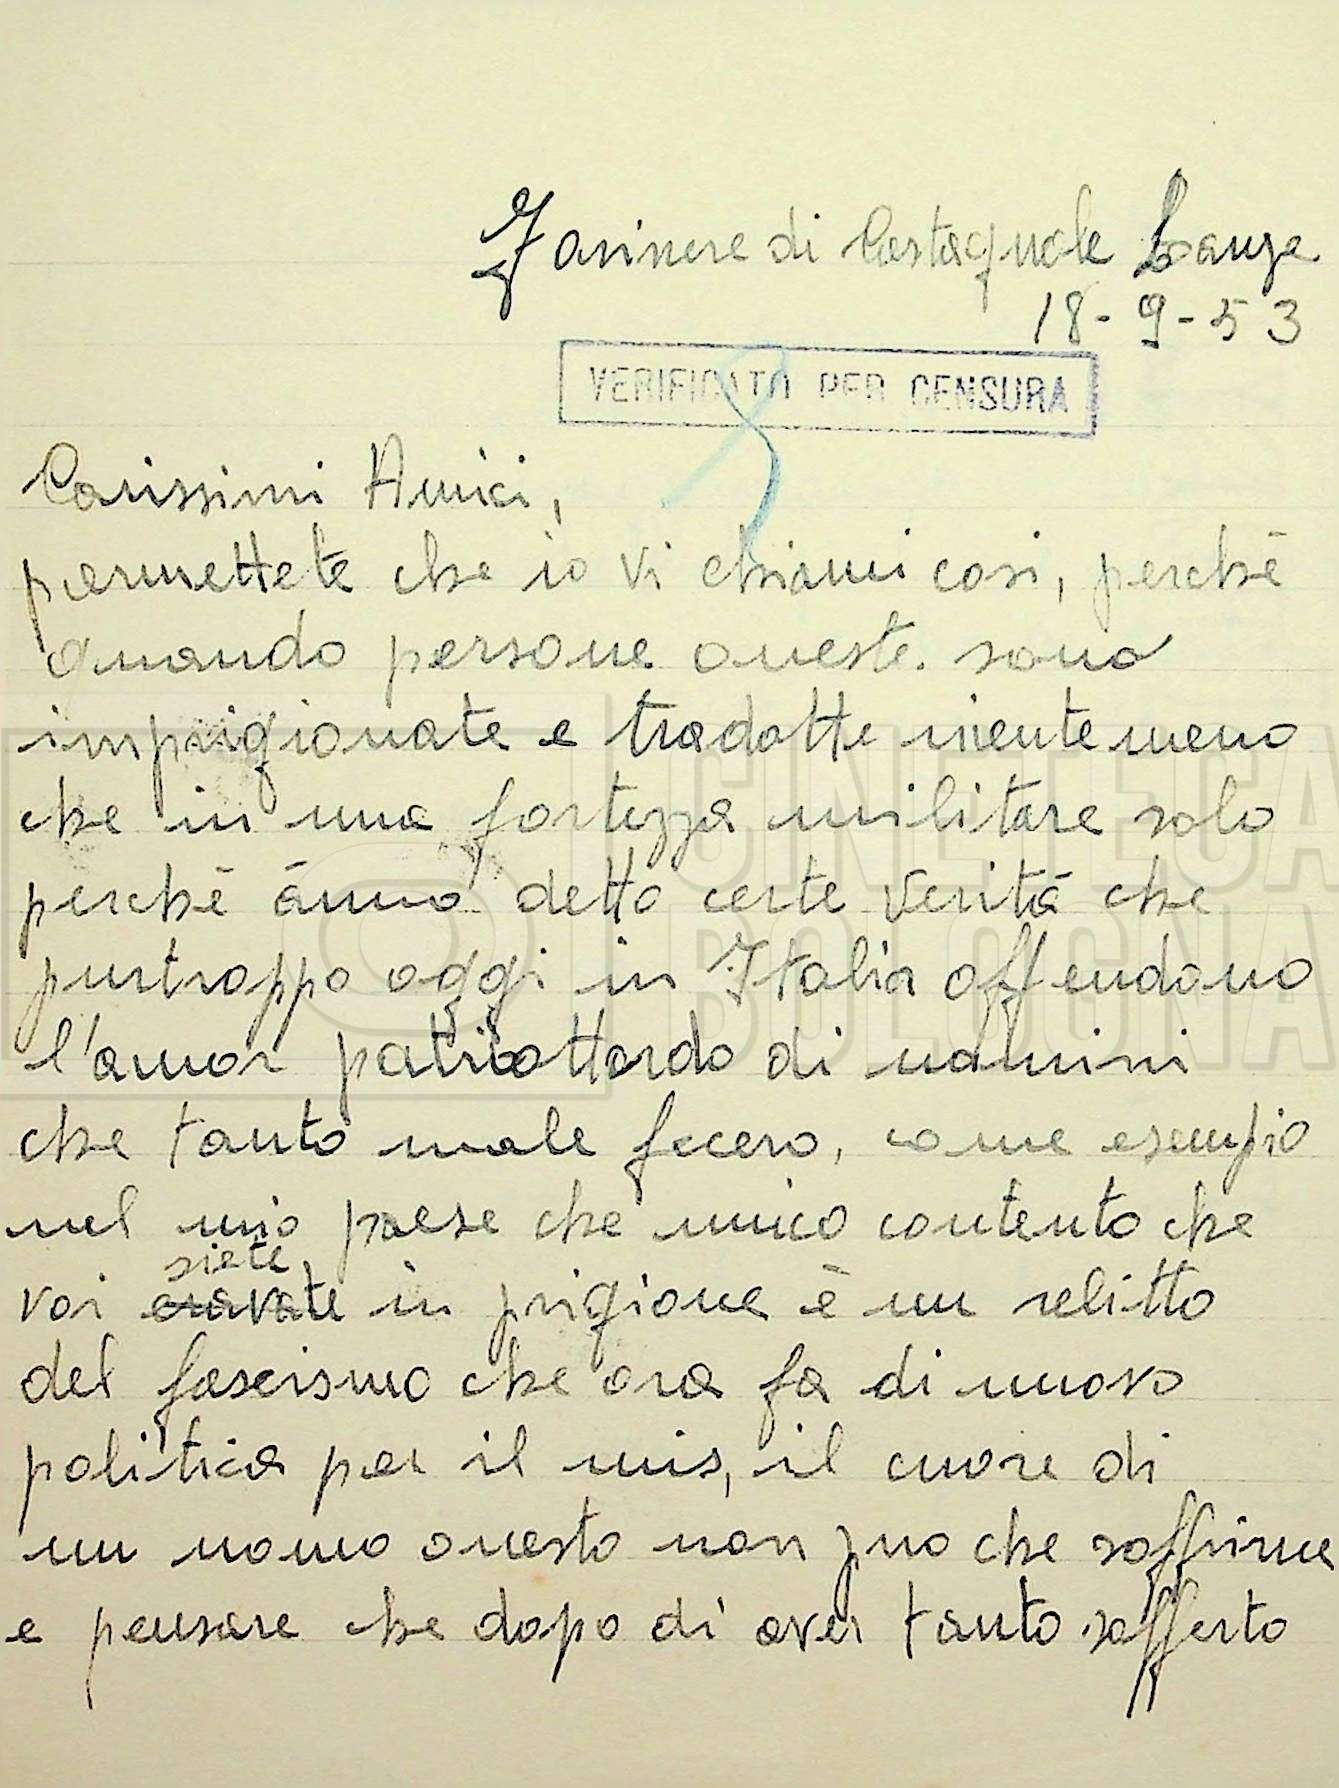 Farinere di Castagnole Lanze
18-9-53
VERIFICATO PER CENSURA
Carissimi Amici,
permettete che io vi chiami cosi, perchè
quando persone oneste. sono
imprigionate e tradotte nientemeno
che in una fortezza militare solo
perchè ànno detto certe verità che
purtroppo oggi in Italia offendono
l'amor patriottardo di uomini
che tanto male fecero, come esempio
nel mio paese che unico contento che
siete
voi eravate in prigione è un relitto
del fascismo che ora fa di nuovo
politica per il mis, il cuore di
un uomo onesto non può che soffrirne
e pensare che dopo di aver tanto sofferto
CINETECA
BOLOGNA